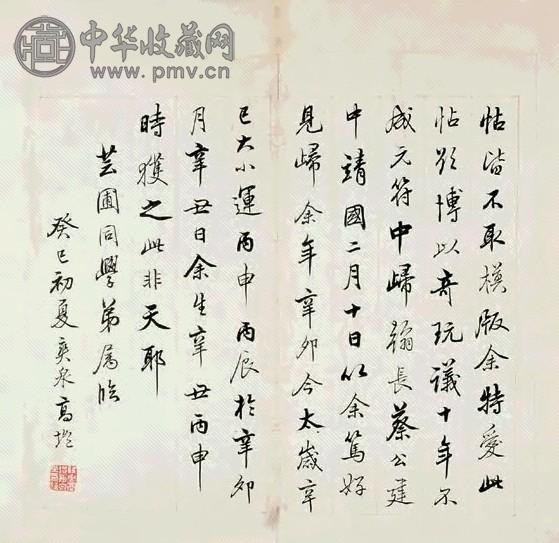 中华收藏网
www.pmv.cn
帖皆不取模版余特愛此
帖欲博以奇玩議十年不
成元符中歸翰長蔡公建
中靖國二月十日以余篤好
見歸余年辛卯今太歲辛
巳大小運丙申丙辰於辛卯
月辛丑日余生辛丑丙申
時獲之此非天耶
芸圃同學弟屬臨
癸巳初夏爽泉高塏